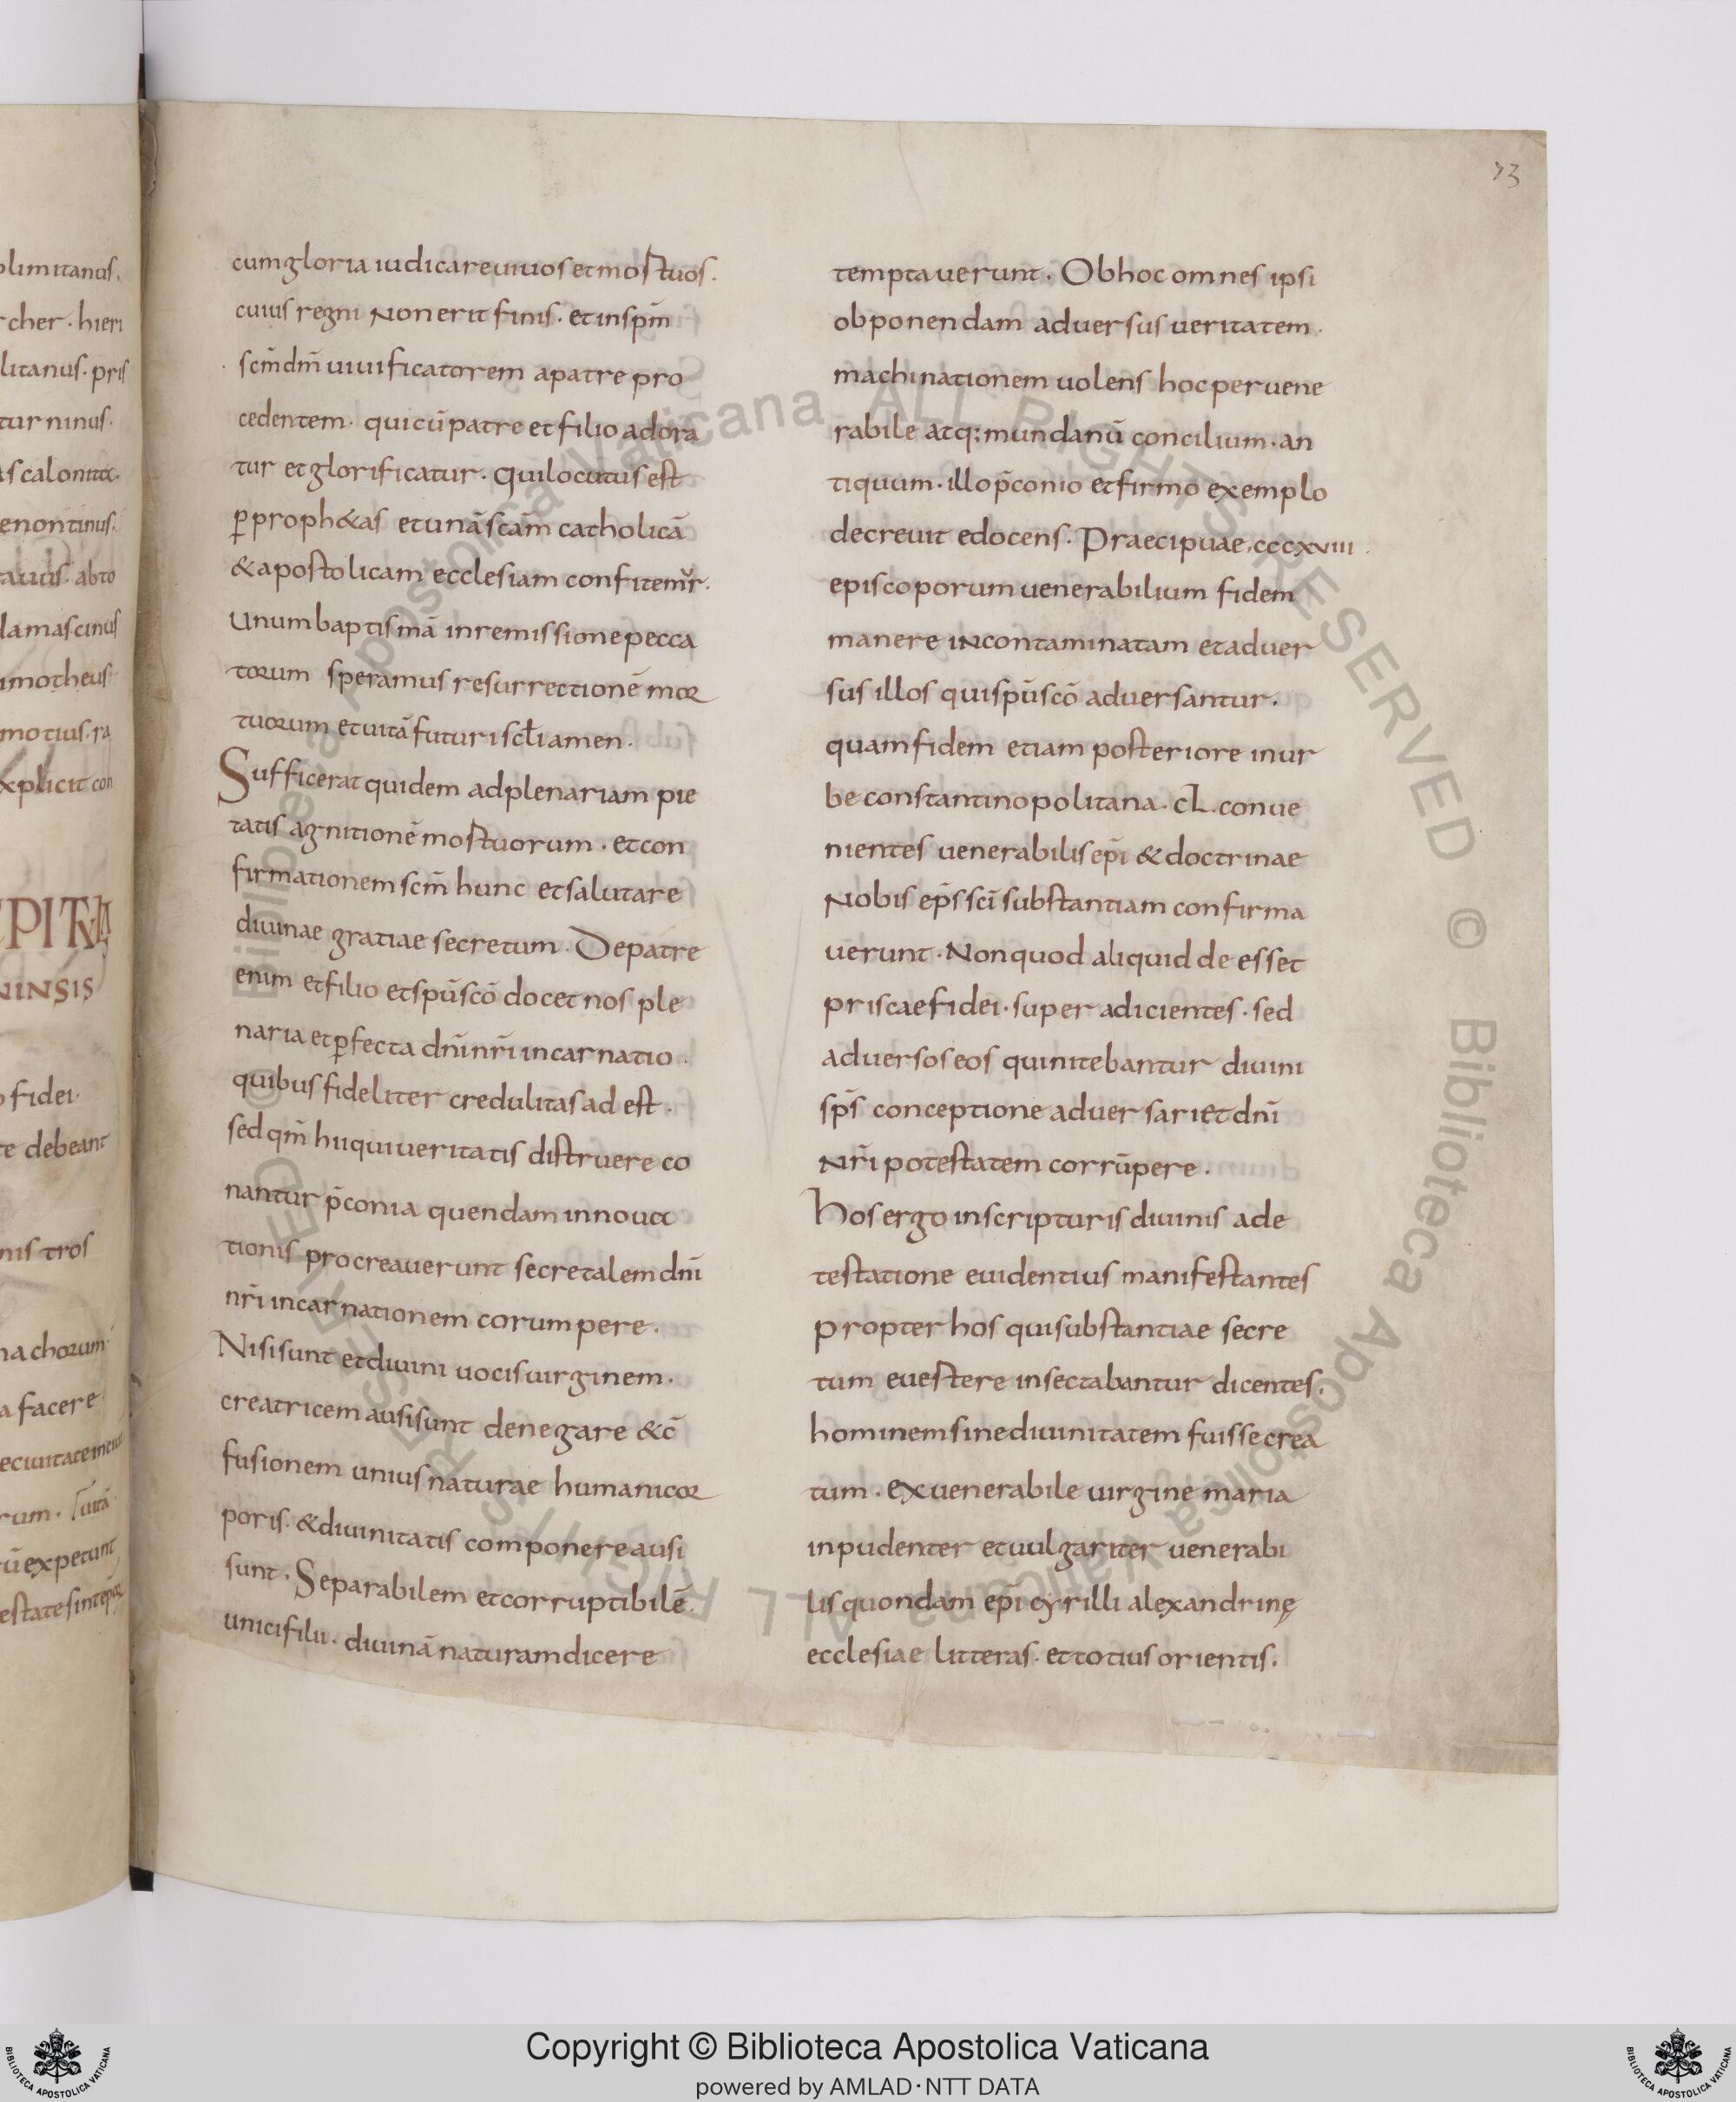 73
cum gloria iudicare uiuos et mortuos.
cuius regni Non erit finis. et in sp̄m
sc̄m dn̄m uiuificatorem a patre pro
cedentem. qui cū patre et filio adora
tur et glorificatur. qui locutus est
ꝑ proph&as et unā scām catholicā
& apostolicam ecclesiam confitemur.
unum baptismā in remissione pecca
torum speramus resurrectionē mor
tuorum et uitā futuri scłi amen.
Sufficerat quidem ad plenariam pie
tatis agnitionē mortuorum. et con
firmationem scm̄ hunc et salutare
diuinae gratiae secretum. De patre
enim et filio et spū scō docet nos ple
naria et ꝑfecta dn̄i nr̄i incarnatio.
quibus fideliter credulitas ad est.
sed qm̄ hii qui ueritatis distruere co
nantur p̄conia quendam innoua
tionis procreauerunt secretalem dn̄i
nr̄i incarnationem corumpere.
Nisi sunt et diuini uocis uirginem.
creatricem ausi sunt denegare & c̄
fusionem unius naturae humani cor
poris. & diuinitatis componere ausi
sunt. Separabilem et corruptibilē
unici filii. diuinā naturam dicere
temptauerunt. Ob hoc omnes ipsi
obponendam aduersus ueritatem.
machinationem uolens hoc per uene
rabile atq; mundanū concilium. an
tiquum. illo p̄conio et firmo exemplo
decreuit edocens. Praecipuae. cccxviii
episcoporum uenerabilium fidem
manere incontaminatam et aduer
sus illos qui spū scō aduersantur.
quam fidem etiam posteriore in ur
be constantinopolitana. cL. conue
nientes uenerabilis ep̄i & doctrinae
Nobis ep̄s sc̄i substantiam confirma
uerunt. Non quod aliquid de esset
priscae fidei. super adicientes. sed
aduersos eos qui nitebantur diuini
sp̄s conceptione aduersari et dn̄i
Nr̄i potestatem corrūpere.
hos ergo in scripturis diuinis ad e
testatione euidentius manifestantes
propter hos qui substantiae secre
tum euertere insectabantur dicentes.
hominem sine diuinitatem fuisse crea
tum. ex uenerabile uirgine maria
inpudenter et uulgariter uenerabi
lis quondam ep̄i cyrilli alexandrinę
ecclesiae litteras. et totius orientis.
Copyright © Biblioteca Apostolica Vaticana
powered by AMLAD·NTT DATA